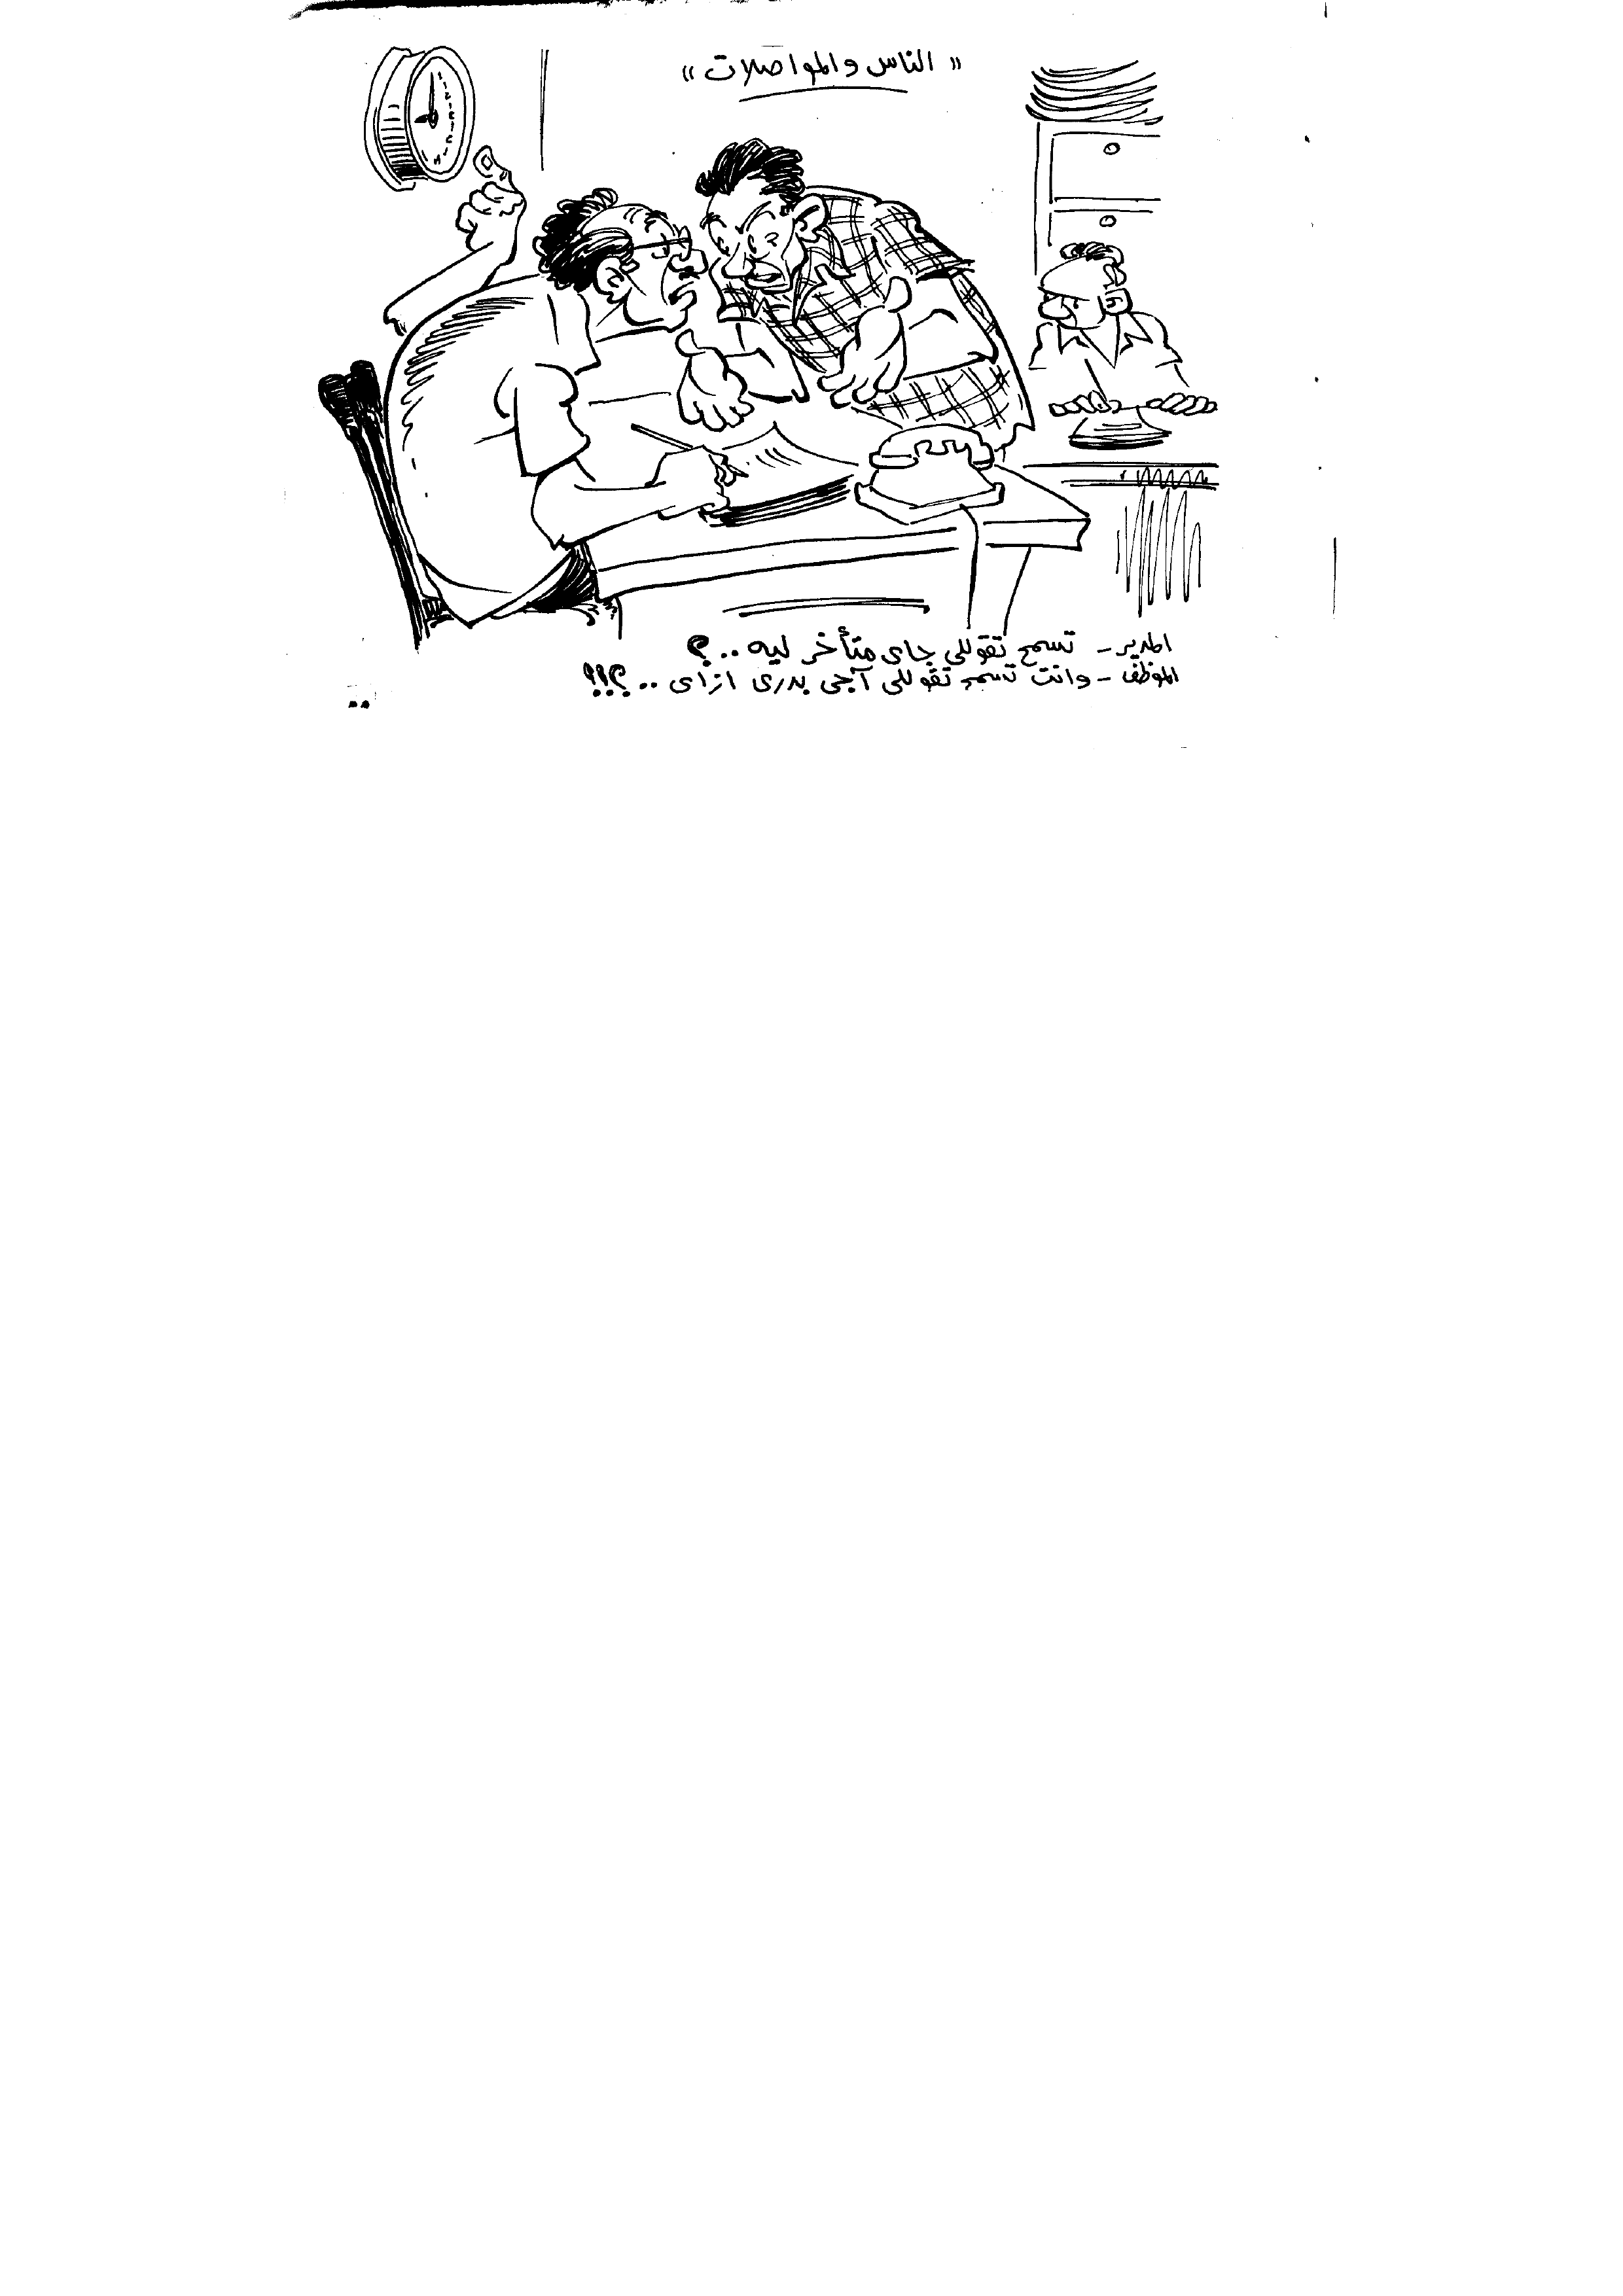 « الناس والمواصلات »
المدير - تسمح تقوللى جاى متأخر ليه .. ؟
الموظف - وانت تسمح تقوللى آجى بدرى ازاى .. ؟!!